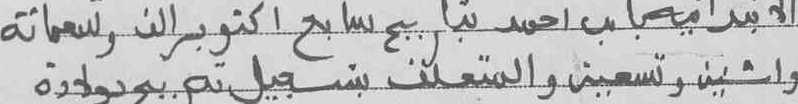 الابتدائية بباب احمد بتاريخ سابع اكتوبر الف وتسعمائة
واثنين وتسعين والمتعلق بتسجيل تصريح بولادة